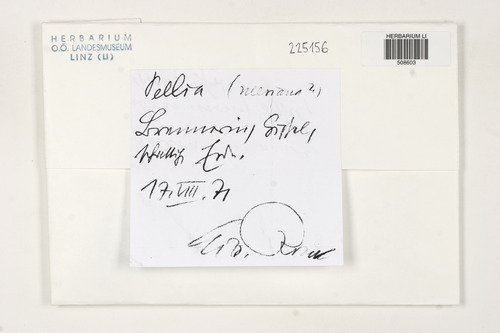 HERBARIUM
O.Ö. LANDESMUSEUM
LINZ (LI)
225156
HERBARIUM LI
508603
Pellia (neesiana?)
Gipfel,
schattige Erde.
17.VIII.71